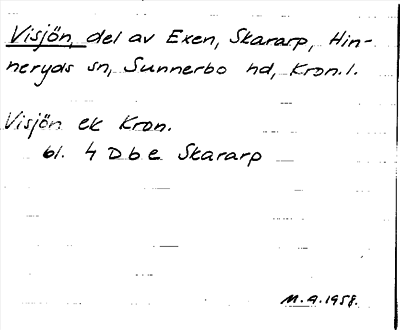 Visjön, del av Exen, Skararp, Hin-
neryds sn, Sunnerbo hd, Kron. l.
Visjön ek Kron.
bl. 4 D b e Skararp
M.A. 1958.